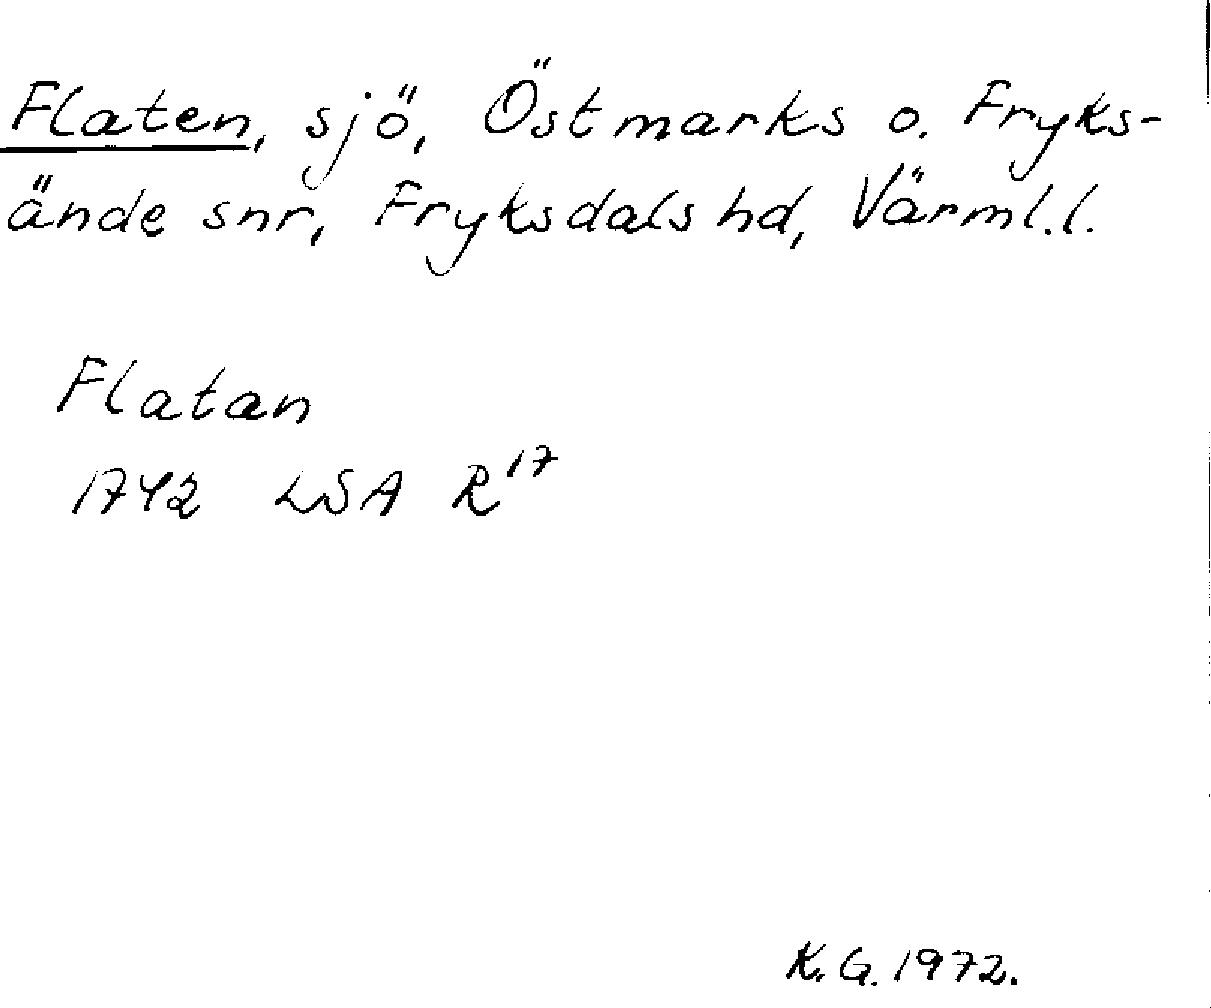 Flaten, sjö, Östmarks o. Fryks-
ände snr, Fryksdals hd, Värml.l.
Flatan
1742 LSA R17
K.G. 1972.